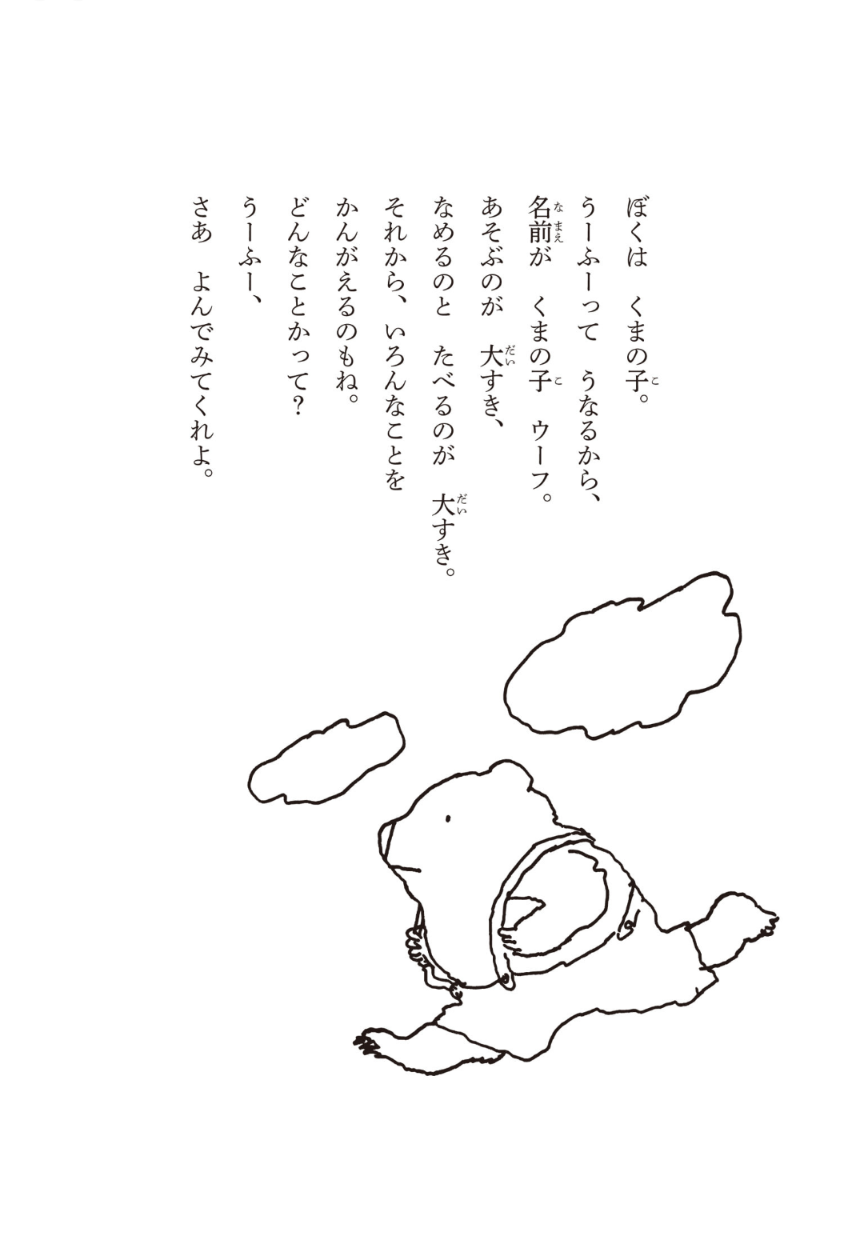 ぼくは　くまの子。
うーふーって　うなるから、
名前が　くまの子　ウーフ。
あそぶのが　大すき、
なめるのと　たべるのが　大すき。
それから、いろんなことを
かんがえるのもね。
どんなことかって？
うーふー、
さあ　よんでみてくれよ。